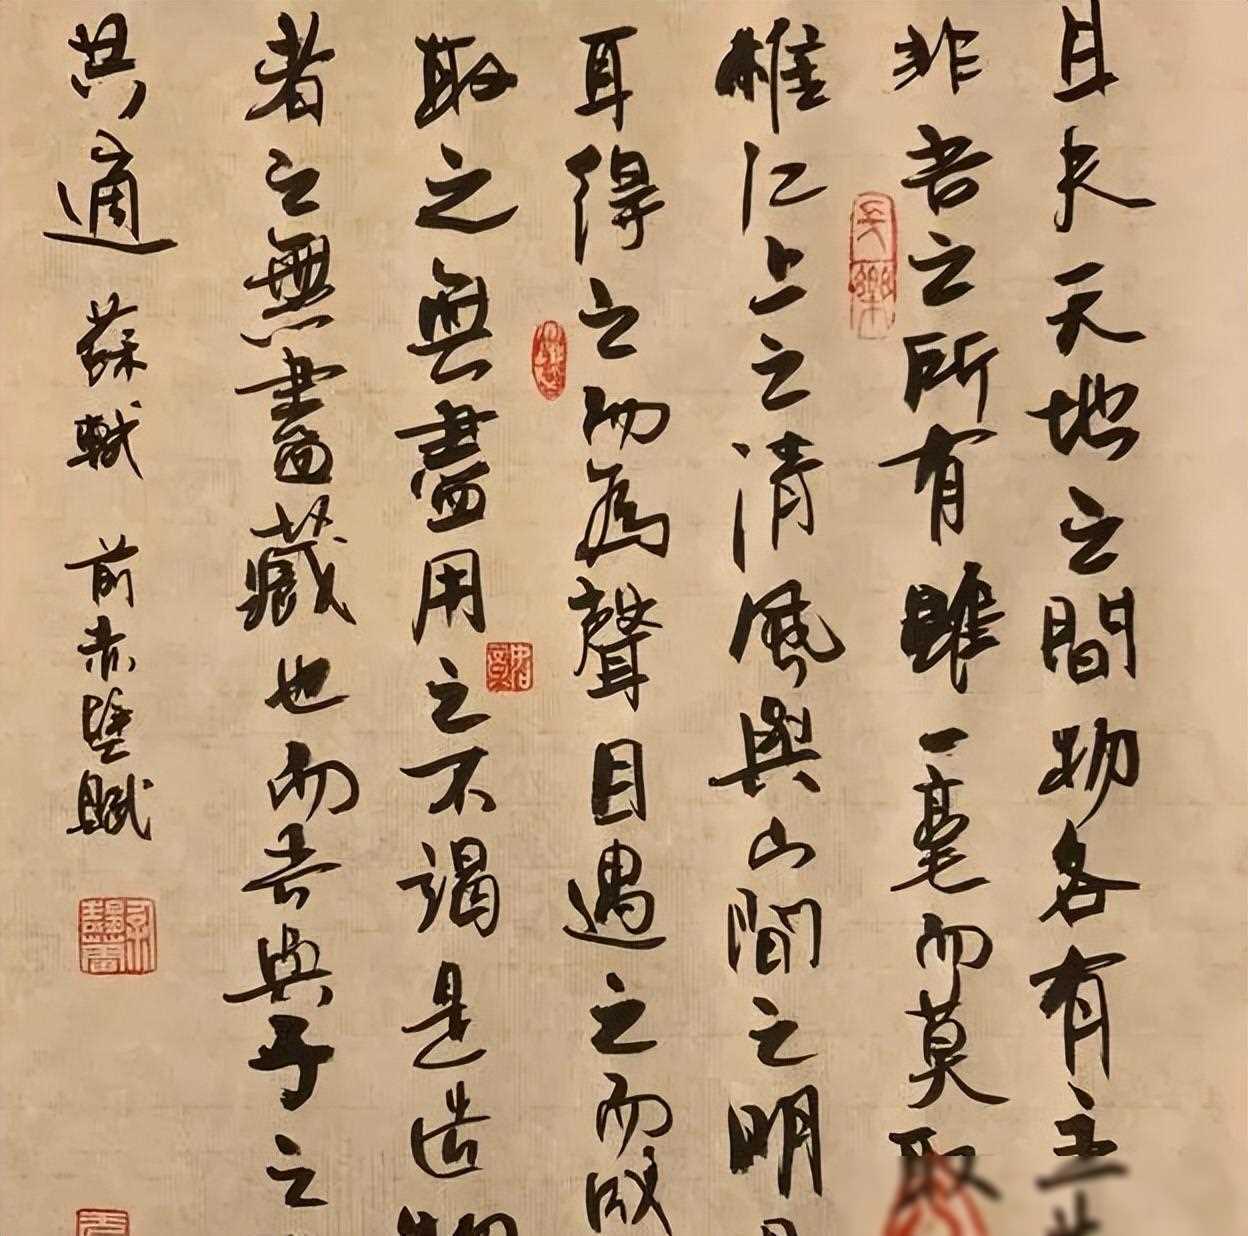 且夫天地之間物各有主
非吾之所有雖一毫而莫取
惟江上之清風與山間之明
耳得之而為聲目遇之而成
取之無盡用之不竭是造物
者之無盡藏也而吾與子之
共適 蘇軾 前赤壁賦